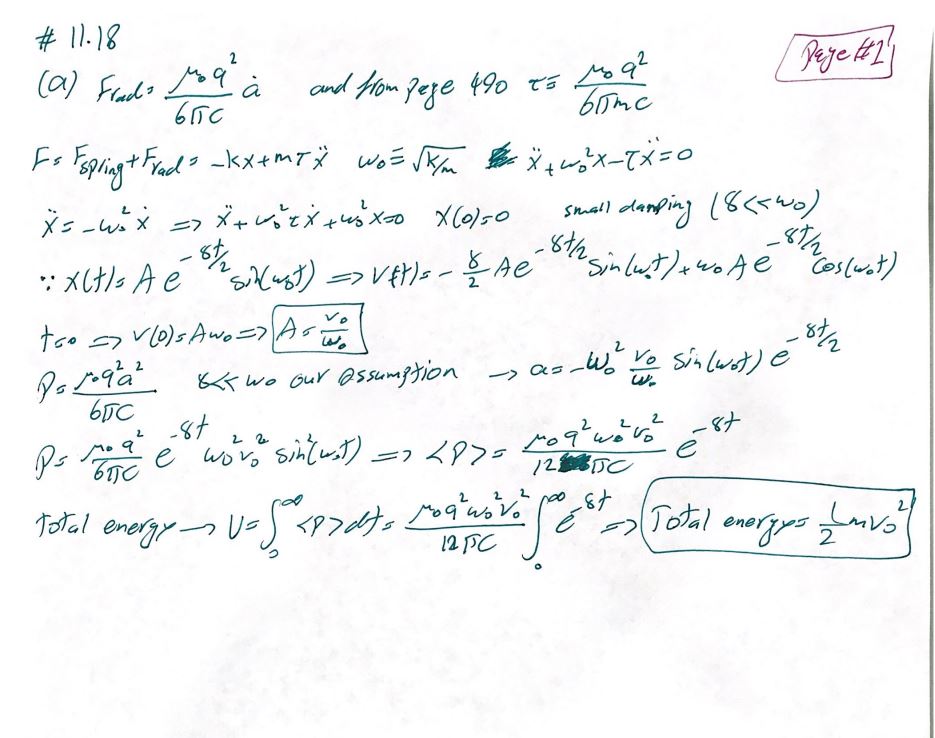 # 11.18
Page #1
(a) Frad = μ₀q²/6πc ȧ and from page 490 τ ≡ μ₀q²/6πmc
F = Fspring + Frad = -kx + mτ x⃛ ω₀ ≡ √k/m ẍ + ω₀²x - τx⃛ = 0
x⃛ = -ω₀² ẋ => ẍ + ω₀²τẋ + ω₀²x = 0 x(0) = 0 small damping (γ << ω₀)
∵ x(t) = A e^(-γt/2) sin(ω₀t) => v(t) = -γ/2 A e^(-γt/2) sin(ω₀t) + ω₀ A e^(-γt/2) cos(ω₀t)
t=0 => v(0) = Aω₀ => A = v₀/ω₀
P = μ₀q²a²/6πc γ << ω₀ our assumption → a = -ω₀² v₀/ω₀ sin(ω₀t) e^(-γt/2)
P = μ₀q²/6πc e^(-γt) ω₀²v₀² sin²(ω₀t) => <P> = μ₀q²ω₀²v₀²/12πc e^(-γt)
Total energy → U = ∫₀^∞ <P> dt = μ₀q²ω₀²v₀²/12πc ∫₀^∞ e^(-γt) => Total energy = 1/2 mv₀²